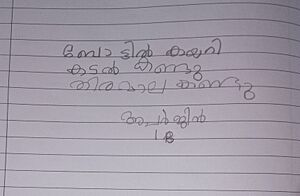 ബോട്ടിൽ കയറി
കടൽ കണ്ടു
തിരമാല കണ്ടു
അപർജിൻ
18